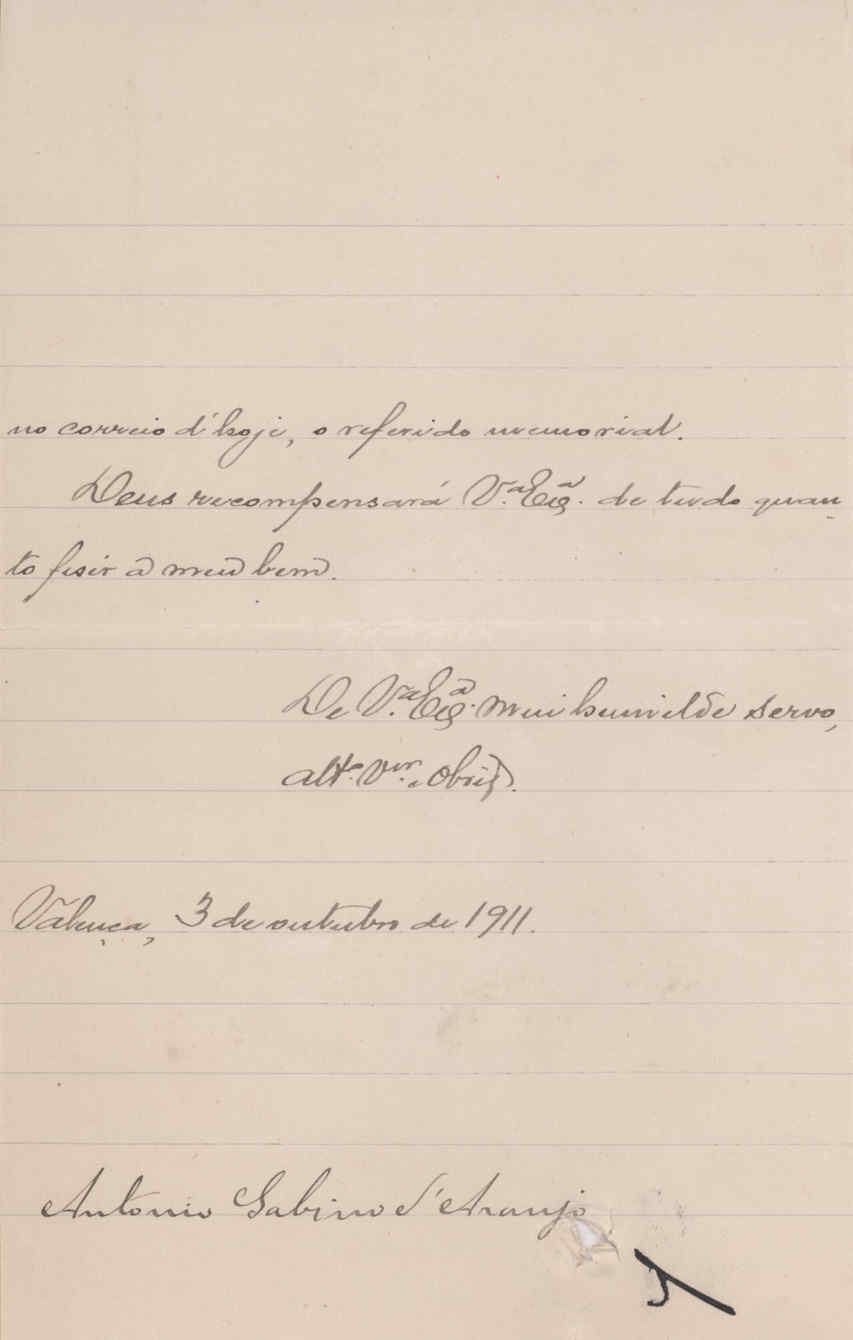 no correio d'hoje, o referido memorial.
Deus recompensará V.ª Exª. de tudo quan
to fiser a meu bem.
De V.ª Exª. mui humilde servo,
attº. Vor. e Obrigº.
Valença, 3 de outubro de 1911.
Antonio Sabino d'Araujo